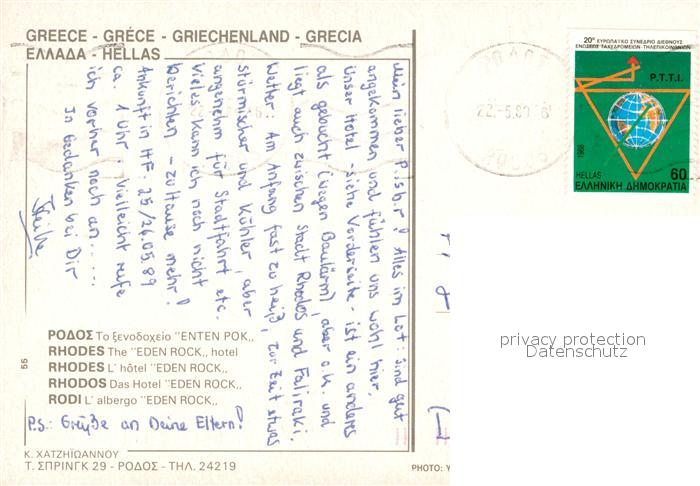 GREECE - GRÉCE - GRIECHENLAND - GRECIA
ΕΛΛΑΔΑ - HELLAS
Mein lieber P.! Alles im Lot: Sind gut
angekommen und fühlen uns wohl hier,
Unser Hotel - siehe Vorderseite - ist ein anderes
als gebucht (wegen Baulärm), aber o.k. und
liegt auch zwischen Stadt Rhodos und Faliraki.
Wetter am Anfang fast zu heiß, zur Zeit etwas
stürmischer und kühler, aber
angenehm für Stadtfahrt etc.
Vieles kann ich noch nicht
berichten - zuhause mehr!
Ankunft in HF: 25/26.05.89
ca. 1 Uhr. Vielleicht rufe
ich vorher noch an....
In Gedanken bei Dir
Heike
ΡΟΔΟΣ Το ξενοδοχείο "ΕΝΤΕΝ ΡΟΚ,,
RHODES The "EDEN ROCK,, hotel
RHODES L' hôtel "EDEN ROCK,,
RHODOS Das Hotel "EDEN ROCK,,
RODI L' albergo "EDEN ROCK,,
P.S.: Grüße an Deine Eltern!
55
Κ. ΧΑΤΖΗΪΩΑΝΝΟΥ
Τ. ΣΠΡΙΝΓΚ 29 - ΡΟΔΟΣ - ΤΗΛ. 24219
PHOTO: Y
22.-5.89
20° ΕΥΡΩΠΑΪΚΟ ΣΥΝΕΔΡΙΟ ΔΙΕΘΝΟΥΣ
ΕΝΩΣΕΩΣ ΤΑΧΥΔΡΟΜΕΙΩΝ-ΤΗΛΕΠΙΚΟΙΝΩΝΙΩΝ
P.T.T.I.
1988
HELLAS 60
ΕΛΛΗΝΙΚΗ ΔΗΜΟΚΡΑΤΙΑ
privacy protection
Datenschutz